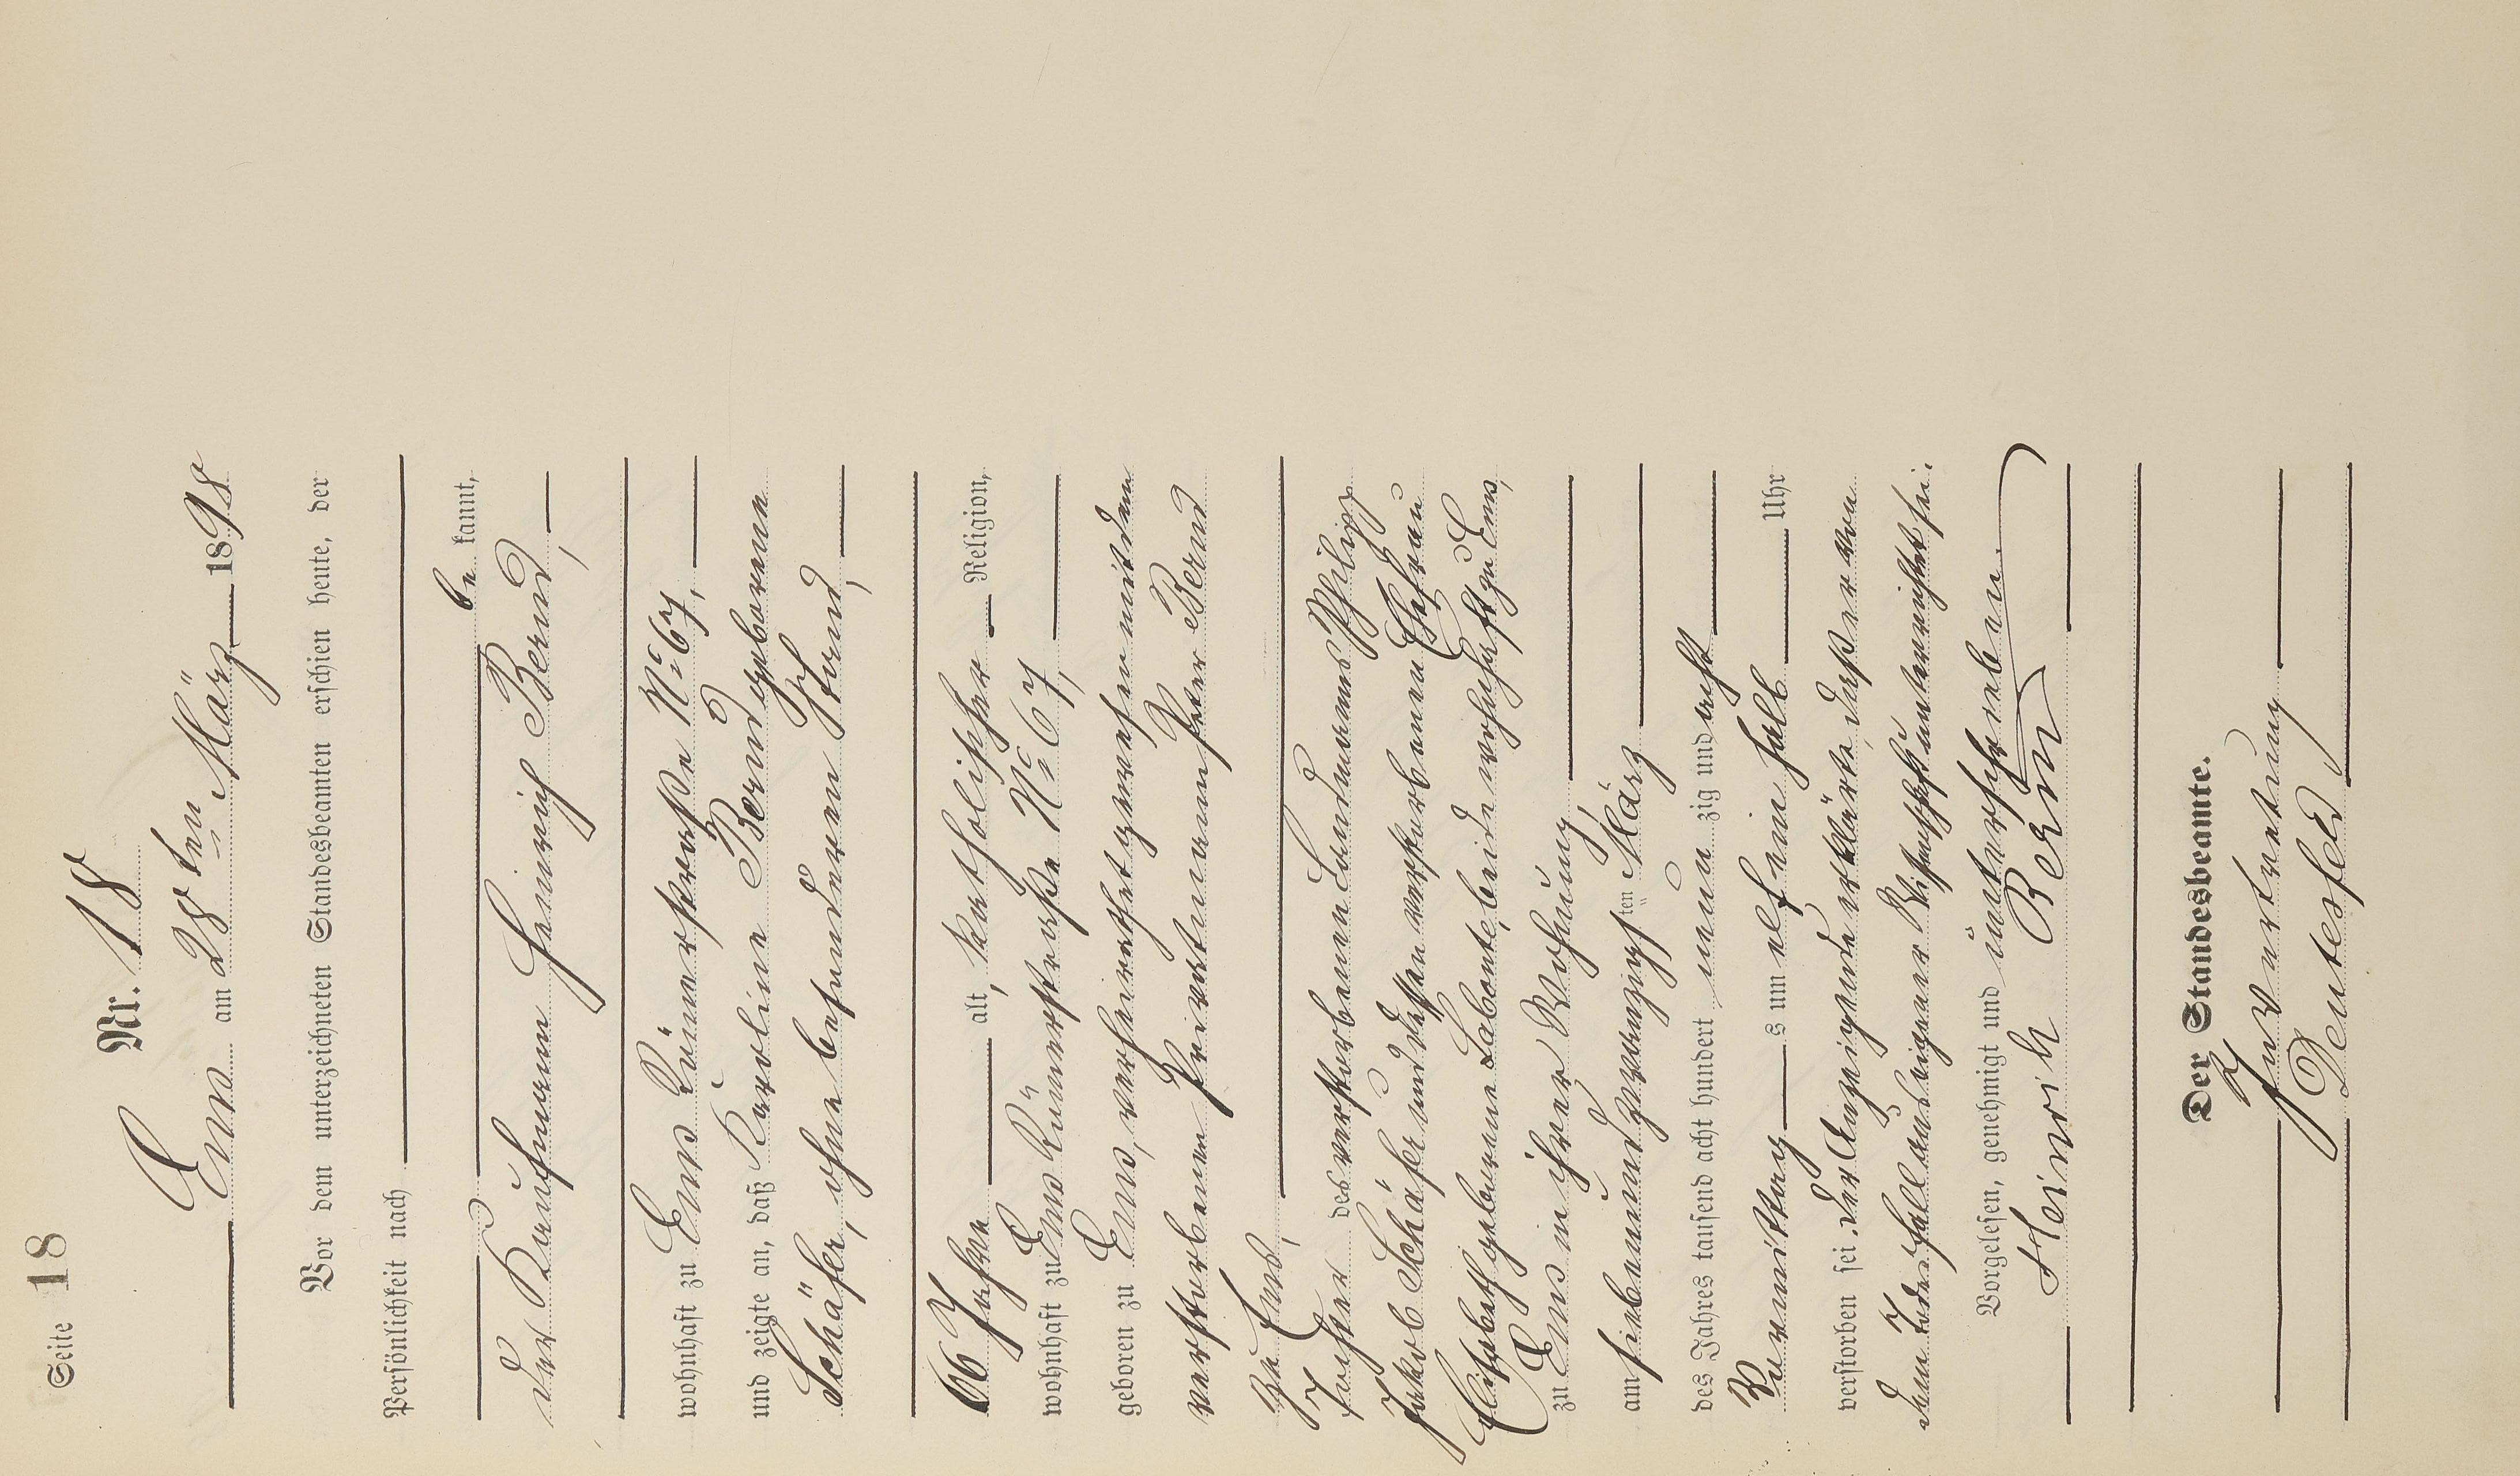 Seite 18
Nr. 18
Ems am 28ten März 1898
Vor dem unterzeichneten Standesbeamten erschien heute, der
Persönlichkeit nach
be kannt,
der Kaufmann Heinrich Bernd,
wohnhaft zu Ems Römerstraße No 67,
und zeigte an, daß Karoline Bernd geborene
Schäfer, ohne besonderen Stand,
66 Jahre alt, katholischer Religion,
wohnhaft zu Ems Römerstraße No 67,
geboren zu Ems, verheirathet gewesen mit dem
verstorbenen Privatmann Peter Bernd
zu Ems,
Tochter des verstorbenen Landmanns Philipp
Jakob Schäfer und dessen verstorbenen Ehefrau
Elisabeth geborene Labonte, beide wohnhaft zu Ems,
zu Ems in ihrer Wohnung,
am siebenundzwanzigsten März
des Jahres tausend acht hundert neun zig und acht
Vormittag s um elfeinhalb Uhr
verstorben sei. Der Anzeigende erklärte, daß er von
dem Todesfall aus eigener Wissenschaft unterrichtet sei.
Vorgelesen, genehmigt und unterschrieben
Heinrich Bernd
Der Standesbeamte.
In Vertretung
Deutesfeld